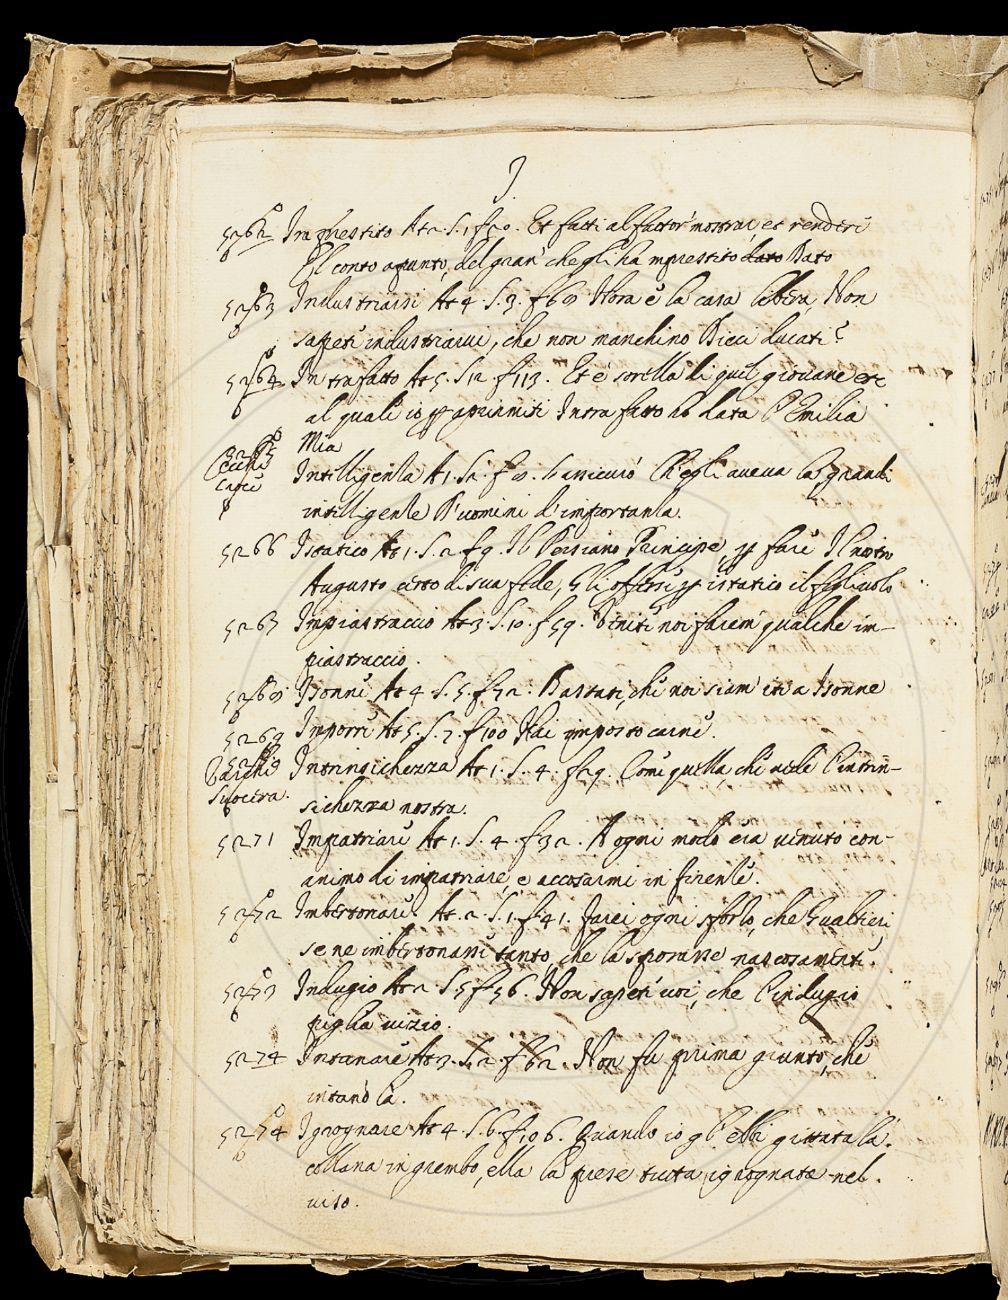 I.
5262 In prestito At 2. S. 1. f 20. Et fatti al fattor nostro, et renderti
El conto apunto, del gran che gli ha inprestito dato Dato
5263 Industriarsi At 4. S. 3. f 68 Hora è la casa libera, Non
sapete industriarvi, che non manchino Dieci ducati?
5264 In trafatto At 5. S. 12 f 113. Et è sorella di quel giovane etc
al quale io p. apriemiti Intrafatto ho data l'Emilia
Mia
5265
Intelligenza At 1. S. 2. f 8. s'assicurò Ch'egli aveva la grandi
intelligenze D'uomini d'importanza.
5266 Istatico At 1. S. 2 f 9. Il Persiano Principe, p fare Il nostro
Augusto certo di sua fede, Gli offerì p istatico il figliuolo
5267 Impiastraccio At 3. S. 10. f 59. noi farem qualche im-
piastraccio.
5268 Isonne At 4. S. 5. f 72. Bastati, che noi siam iti a Isonne
5269 Imporre At 5. S. 7. f 100 Hai imposto carne.
Varchi
Suocera.
Intrinsichezza At 1. S. 4. f 29. Come quella, che vede l'intrin-
sichezza nostra.
5271 Impatriare At 1. S. 4. f 32. A ogni modo era venuto con
animo di impatriare, e accasarmi in firenze.
5272 Imbertonare. At. 2. S. 1. f 41. Farei ogni sforzo, che Gualtieri
se ne imbertonassi tanto, che la sposasse nascosamente.
5273 Indugio At 2. S. 5 f 56. Non sapete voi, che l'indugio
piglia vizio.
5274 Intanare At 3. S. 2. f 62. Non fu prima giunto, che
intanò la.
5274 Ingrognare At 4. S. 6. f 106. Quando io gl' ebbi gittata la
collana in grembo, ella la prese tutta ingrognata nel
viso.